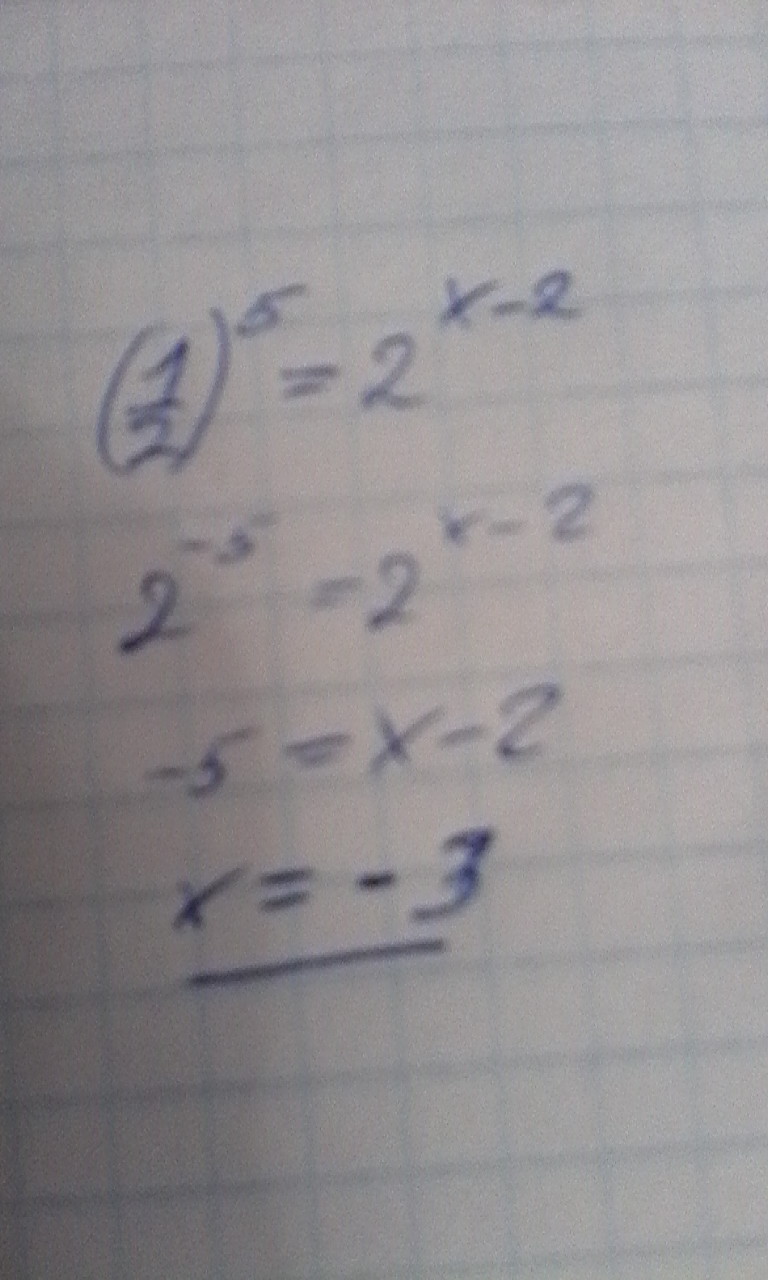 (1/2)^5 = 2^(x-2)
2^(-5) = 2^(x-2)
-5 = x-2
x = -3